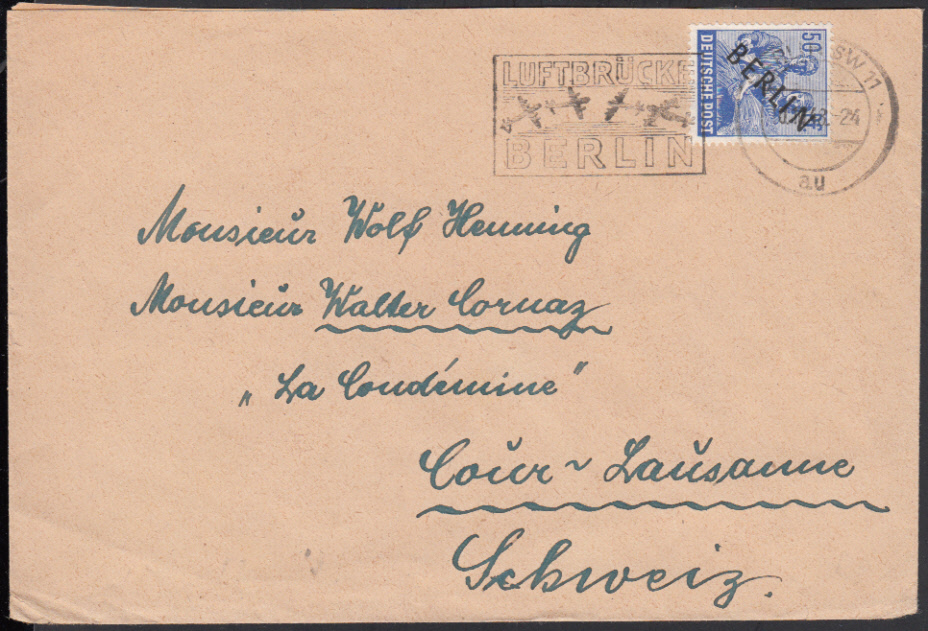 LUFTBRÜCKE
BERLIN
50
DEUTSCHE POST
BERLIN
SW 11
-24
au
Monsieur Wolf Henning
Monsieur Walter Cornaz
„La Condémine“
Cour ~ Lausanne
Schweiz.